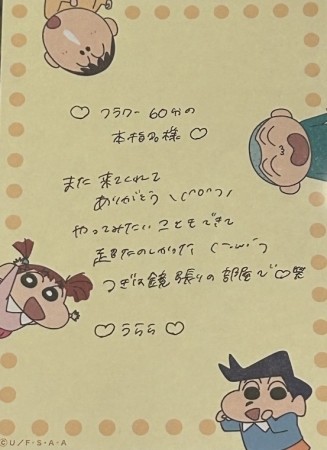 ♡ フラワー60分の
本指名様 ♡
また 来てくれて
ありがとう \(^o^)/
やってみたい こともできて
超たのしかった (*´ω`*)
つぎは鏡張りの部屋で♡笑
♡ うらら ♡
©U/F・S・A・A